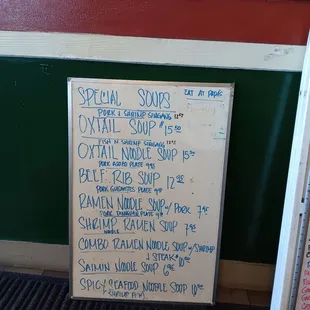 SPECIAL SOUPS
PORK & SHRIMP SINIGANG
OXTAIL SOUP $15.50
FISH N SHRIMP SINIGANG
OXTAIL NOODLE SOUP 15.50
PORK ADOBO PLATE
BEEF RIB SOUP 12.00
PORK GUISANTES PLATE
RAMEN NOODLE SOUP w/ PORK 7.95
PORK PLATE
SHRIMP RAMEN SOUP 7.95
NOODLE
COMBO RAMEN NOODLE SOUP w/ SHRIMP
& STEAK $10.00
SAIMIN NOODLE SOUP 6.95
SPICY SEAFOOD NOODLE SOUP